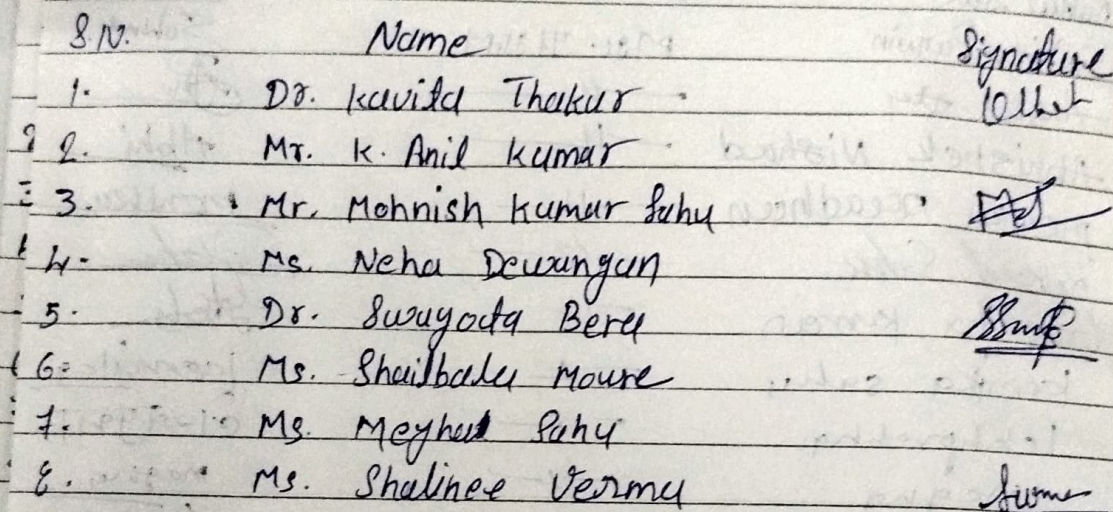 S.N. Name Signature
1. Dr. Kavita Thakur
2. Mr. K. Anil Kumar
3. Mr. Mohnish Kumar Sahu
4. Ms. Neha Dewangan
5. Dr. Swagota Bera
6. Ms. Shailbala Moure
7. Ms. Megha Sahu
8. Ms. Shalinee Verma